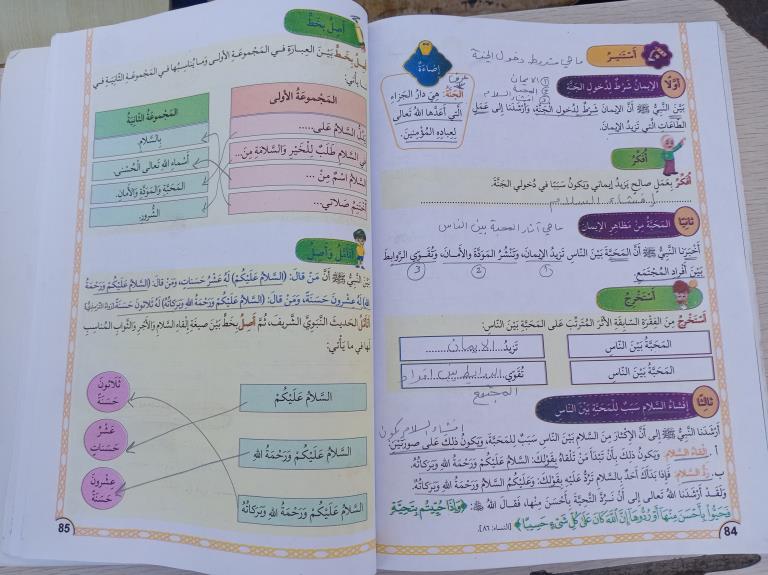 أَسْتَنيرُ
ما هي شروط دخول الجنة
أَوَّلًا
الإيمانُ شَرْطٌ لِدُخولِ الجَنَّةِ
① الايمان
② المحبة
السلام
بَيَّنَ النَّبِيُّ ﷺ أَنَّ الإيمانَ شَرْطٌ لِدُخولِ الجَنَّةِ، وَأَرْشَدَنا إلى عَمَلِ
الطّاعاتِ الَّتي تَزيدُ الإيمانَ.
إضاءَةٌ
الجَنَّةُ: هِيَ دارُ الجَزاءِ
الَّتي أَعَدَّها اللهُ تَعالى
لِعِبادِهِ المُؤْمِنينَ.
أُفَكِّرُ
أُفَكِّرُ بِعَمَلٍ صالِحٍ يَزيدُ إيماني وَيَكونُ سَبَبًا في دُخولي الجَنَّةَ.
ثانِيًا
المَحَبَّةُ مِنْ مَظاهِرِ الإيمانِ
ما هي آثار المحبة بين الناس
أَخْبَرَنا النَّبِيُّ ﷺ أَنَّ المَحَبَّةَ بَيْنَ النّاسِ تَزيدُ الإيمانَ، وَتَنْشُرُ المَوَدَّةَ وَالأَمانَ، وَتُقَوّي الرَّوابِطَ
① ② ③
بَيْنَ أَفْرادِ المُجْتَمَعِ.
أَسْتَخْرِجُ
أَسْتَخْرِجُ مِنَ الفِقْرَةِ السّابِقَةِ الأَثَرَ المُتَرَتِّبَ عَلى المَحَبَّةِ بَيْنَ النّاسِ:
المَحَبَّةُ بَيْنَ النّاسِ
تَزيدُ الايمان
المَحَبَّةُ بَيْنَ النّاسِ
تُقَوّي الروابط بين افراد
المجتمع
ثالِثًا
إِفْشاءُ السَّلامِ سَبَبٌ لِلْمَحَبَّةِ بَيْنَ النّاسِ
إفشاء السلام يكون
أَرْشَدَنا النَّبِيُّ ﷺ إلى أَنَّ الإِكْثارَ مِنَ السَّلامِ بَيْنَ النّاسِ سَبَبٌ لِلْمَحَبَّةِ، وَيَكونُ ذلِكَ عَلى صورَتَيْنِ:
أ . إِلْقاءُ السَّلامِ: وَيَكونُ ذلِكَ بِأَنْ تَبْدَأَ مَنْ تَلْقاهُ بِقَوْلِكَ: السَّلامُ عَلَيْكُمْ وَرَحْمَةُ اللهِ وَبَرَكاتُهُ.
ب. رَدُّ السَّلامِ: فَإِذا بَدَأَكَ أَحَدٌ بِالسَّلامِ تَرُدُّ عَلَيْهِ بِقَوْلِكَ: وَعَلَيْكُمُ السَّلامُ وَرَحْمَةُ اللهِ وَبَرَكاتُهُ.
وَلَقَدْ أَرْشَدَنا اللهُ تَعالى إلى أَنْ نَرُدَّ التَّحِيَّةَ بِأَحْسَنَ مِنْها، فَقالَ اللهُ: ﴿وَإِذَا حُيِّيتُم بِتَحِيَّةٍ
فَحَيُّوا بِأَحْسَنَ مِنْهَا أَوْ رُدُّوهَا إِنَّ اللَّهَ كَانَ عَلَى كُلِّ شَيْءٍ حَسِيبًا﴾ [النساء: ٨٦].
84
أَصِلُ بِخَطٍّ
بِخَطٍّ بَيْنَ العِبارَةِ في المَجْموعَةِ الأولى وَما يُناسِبُها في المَجْموعَةِ الثّانِيَةِ في
يأتي:
المَجْموعَةُ الأولى
المَجْموعَةُ الثّانِيَةُ
السَّلامُ عَلى.....
بِالسَّلامِ.
في السَّلامِ طَلَبٌ لِلْخَيْرِ وَالسَّلامَةِ مِنَ...
أَسْماءِ اللهِ تَعالى الحُسْنى.
السَّلامُ اسْمٌ مِنْ ...
المَحَبَّةِ وَالمَوَدَّةِ وَالأَمانِ.
أَخْتَتِمُ صَلاتي...
الشُّرورِ.
أَتَأَمَّلُ وَأَصِلُ
بَيَّنَ النَّبِيُّ ﷺ أَنَّ مَنْ قالَ: (السَّلامُ عَلَيْكُمْ) لَهُ عَشْرُ حَسَناتٍ، وَمَنْ قالَ: (السَّلامُ عَلَيْكُمْ وَرَحْمَةُ
اللهِ) لَهُ عِشْرونَ حَسَنَةً، وَمَنْ قالَ: (السَّلامُ عَلَيْكُمْ وَرَحْمَةُ اللهِ وَبَرَكاتُهُ) لَهُ ثَلاثونَ حَسَنَةً
أَتَأَمَّلُ الحَديثَ النَّبَوِيَّ الشَّريفَ، ثُمَّ أَصِلُ بِخَطٍّ بَيْنَ صيغَةِ إِلْقاءِ السَّلامِ وَالأَجْرِ وَالثَّوابِ المُناسِبِ
لَها في ما يَأْتي:
السَّلامُ عَلَيْكُمْ
ثَلاثونَ حَسَنَةً
السَّلامُ عَلَيْكُمْ وَرَحْمَةُ اللهِ
عَشْرُ حَسَناتٍ
السَّلامُ عَلَيْكُمْ وَرَحْمَةُ اللهِ وَبَرَكاتُهُ
عِشْرونَ حَسَنَةً
85